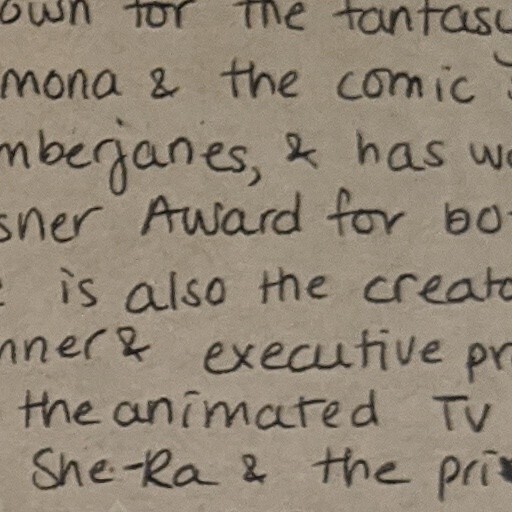 own for the fantasy
mona & the comic
mberjanes, & has wo
sner Award for bo
is also the creato
nner & executive pr
the animated TV
She-Ra & the pri